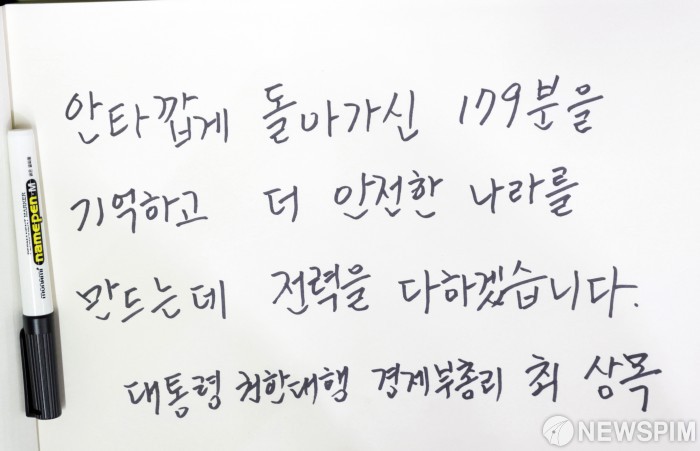 안타깝게 돌아가신 179분을
기억하고 더 안전한 나라를
만드는데 전력을 다하겠습니다.
대통령 권한대행 경제부총리 최 상목
namepen·M
monami
NEWSPIM